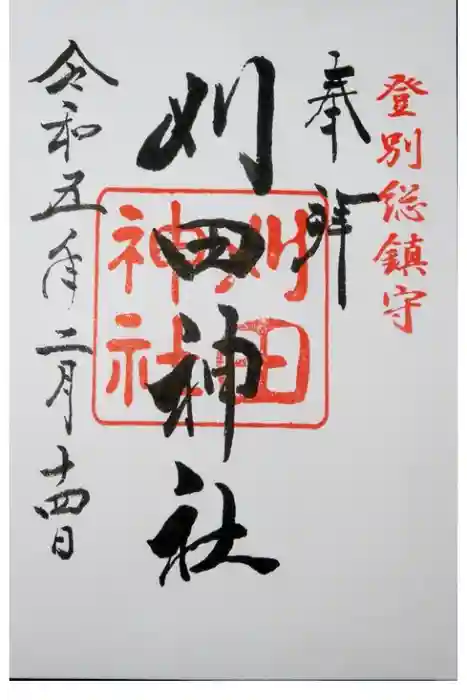 登別総鎮守
奉拝
刈田神社
刈田
神社
令和五年二月十四日